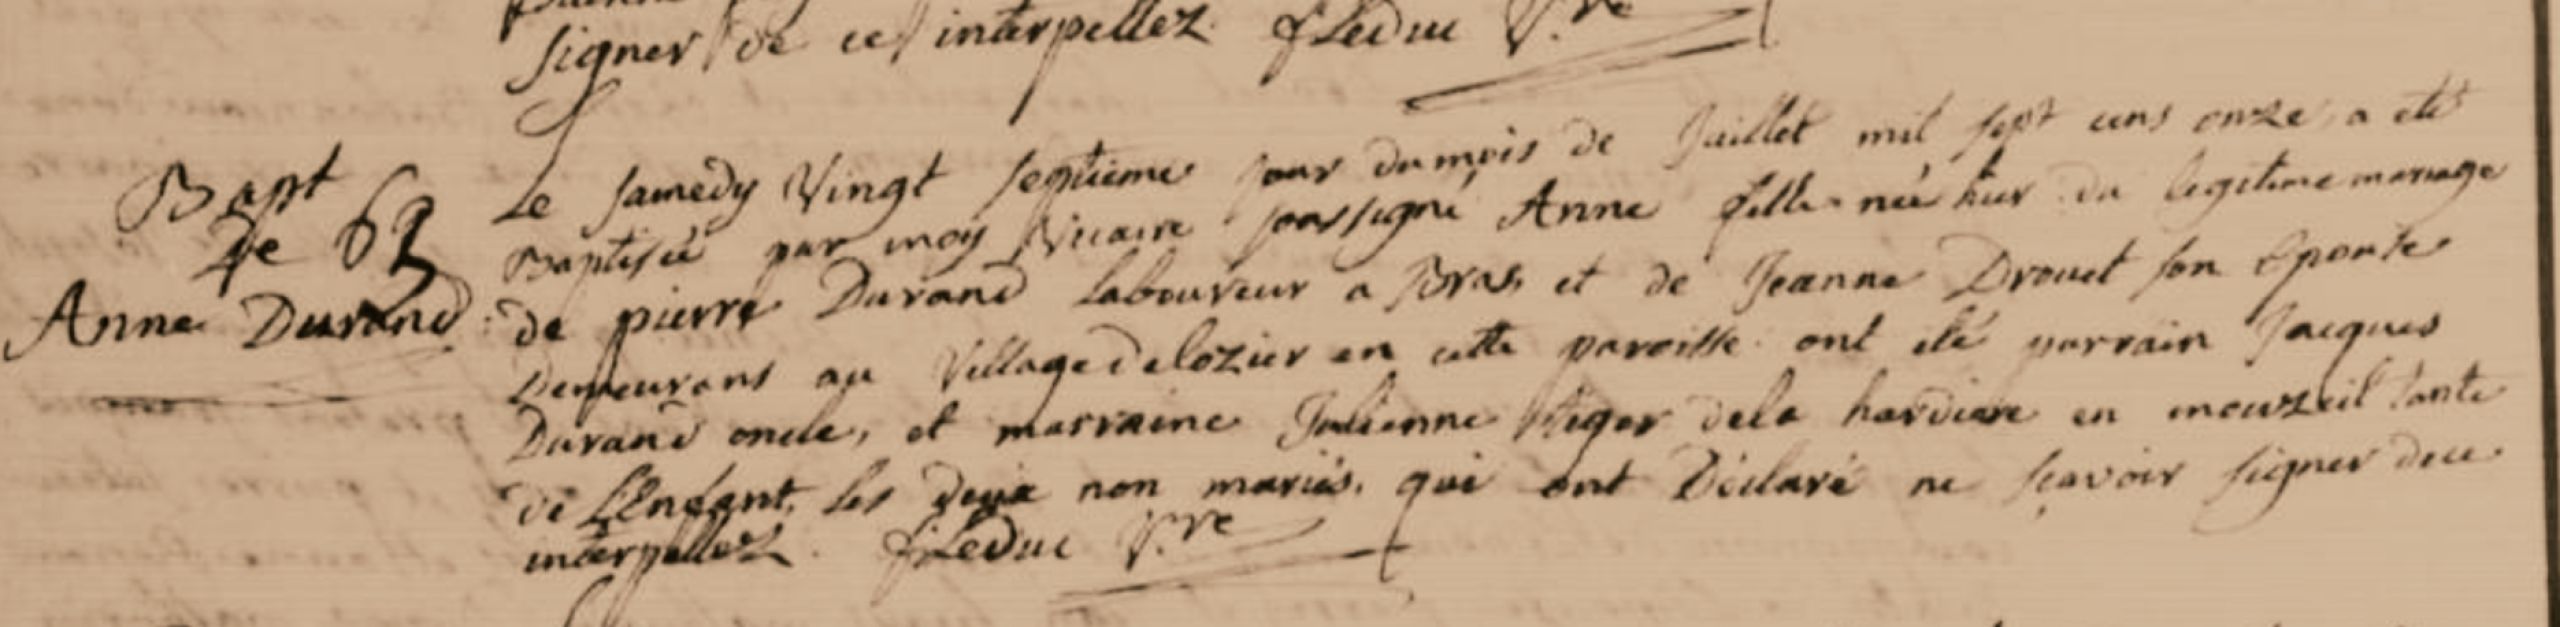 signer de ce interpellez. f Leduc V.re
Bapt
de 63
Anne Durand
Le samedy Vingt septieme jour du mois de Juillet mil sept cens onze, a eté
Baptisée par moy Vicaire soussigné Anne fille née hier du legitime mariage
de pierre Durand Laboureur a Bras, et de Jeanne Drouet son Epouse
Demeurans au Village delozier en cette paroisse. ont eté parrain Jacques
Durand oncle, et marraine Julienne dela hardiere en mouzeil tante
de L'Enfant, les deux non mariés. qui ont Déclaré ne sçavoir signer dece
interpellez. f Leduc V.re